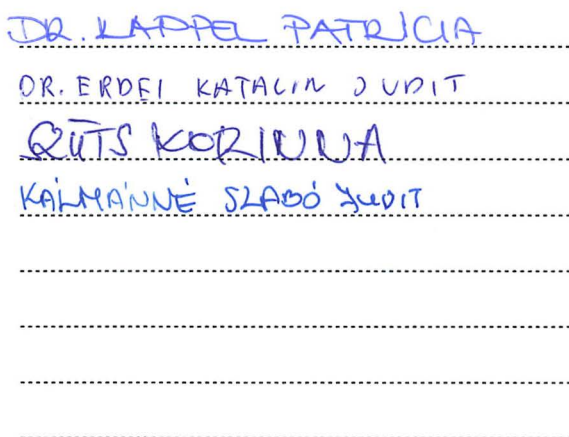 DR. KAPPEL PATRÍCIA
DR. ERDEI KATALIN JUDIT
RÜTS KORINNA
KÁLMÁNNÉ SZABÓ JUDIT